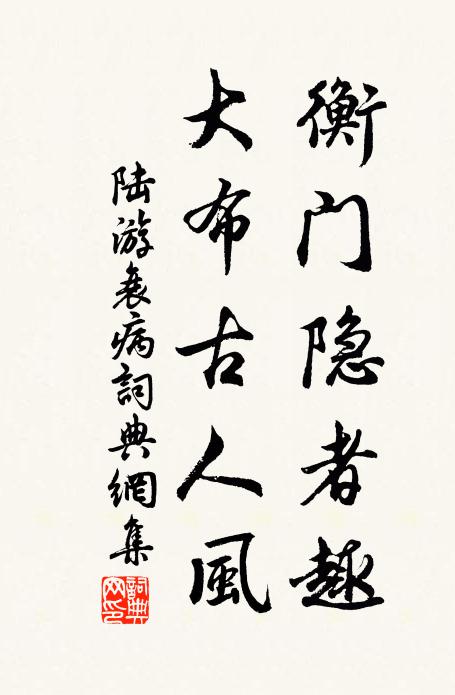 衡门隐者趣
大布古人風
陆游衰病詞典網集
詞典網印